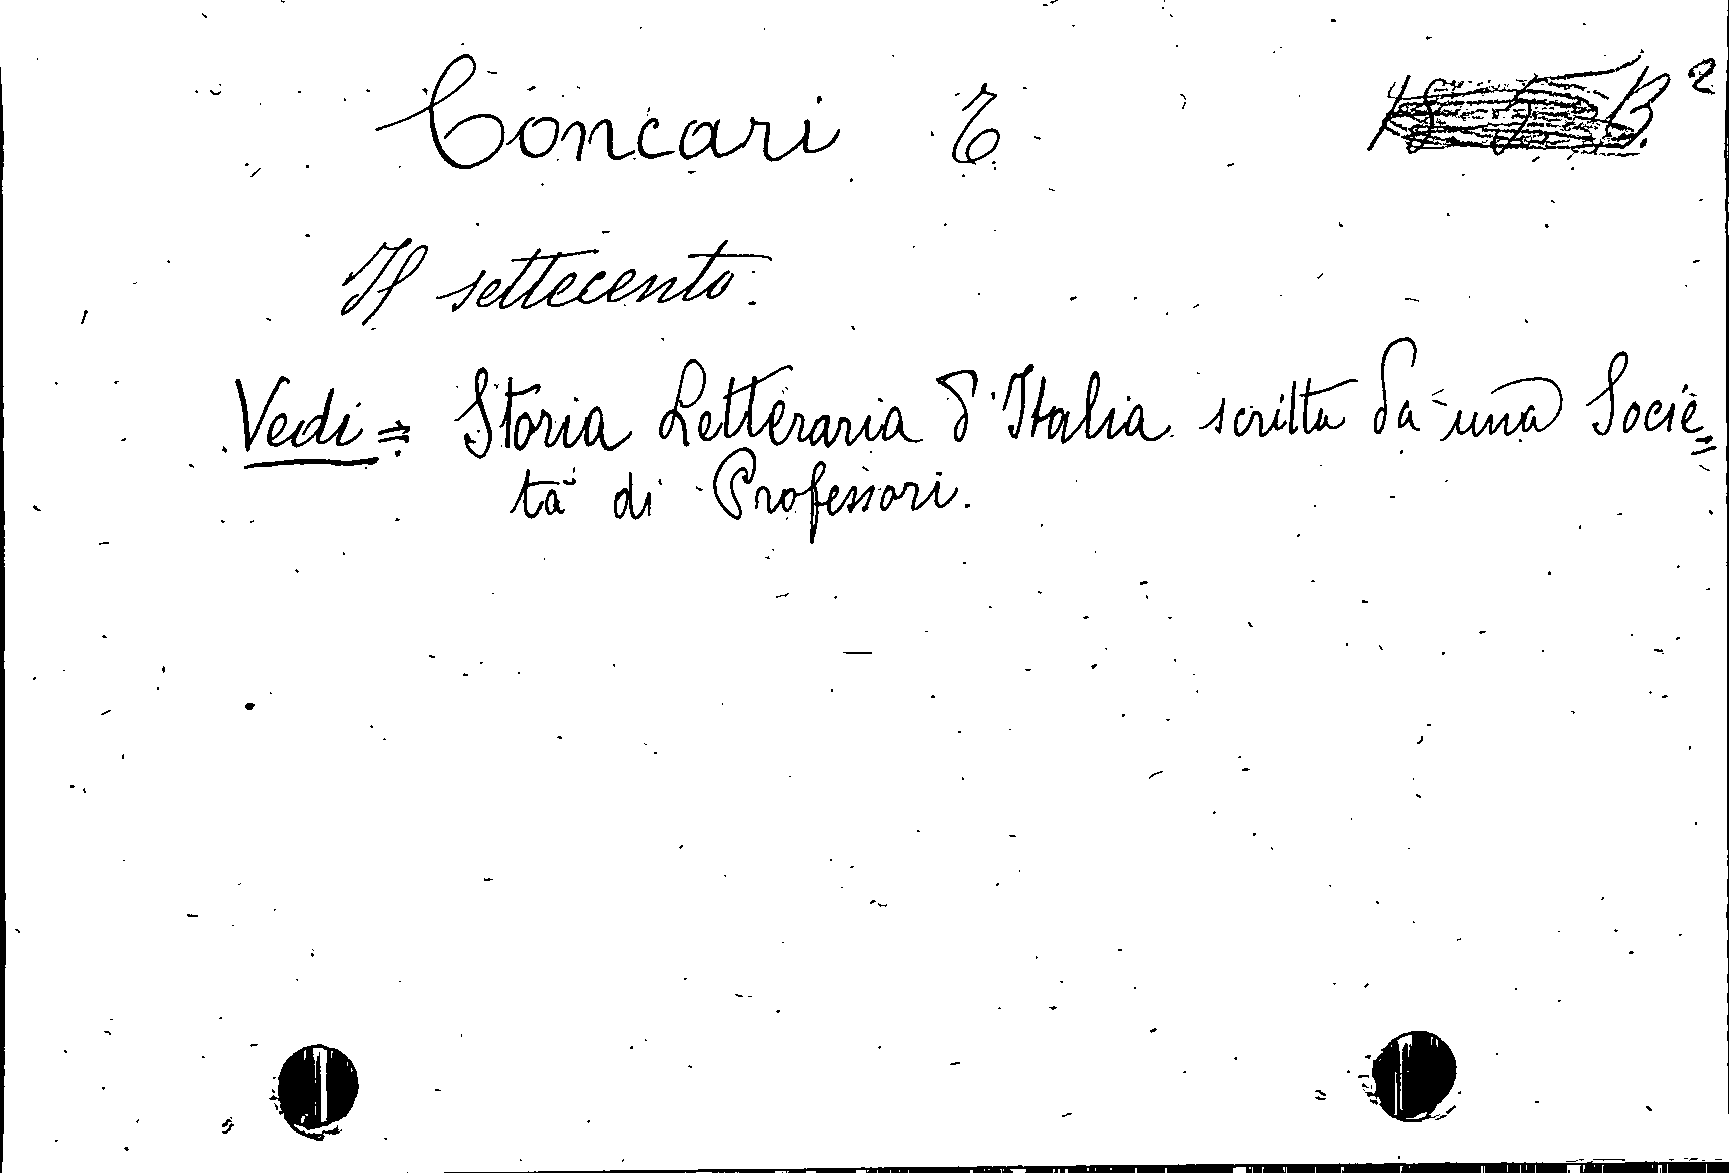 Concari T
Il settecento.
Vedi = Storia Letteraria d'Italia scritta da una Socie=
tà di Professori.